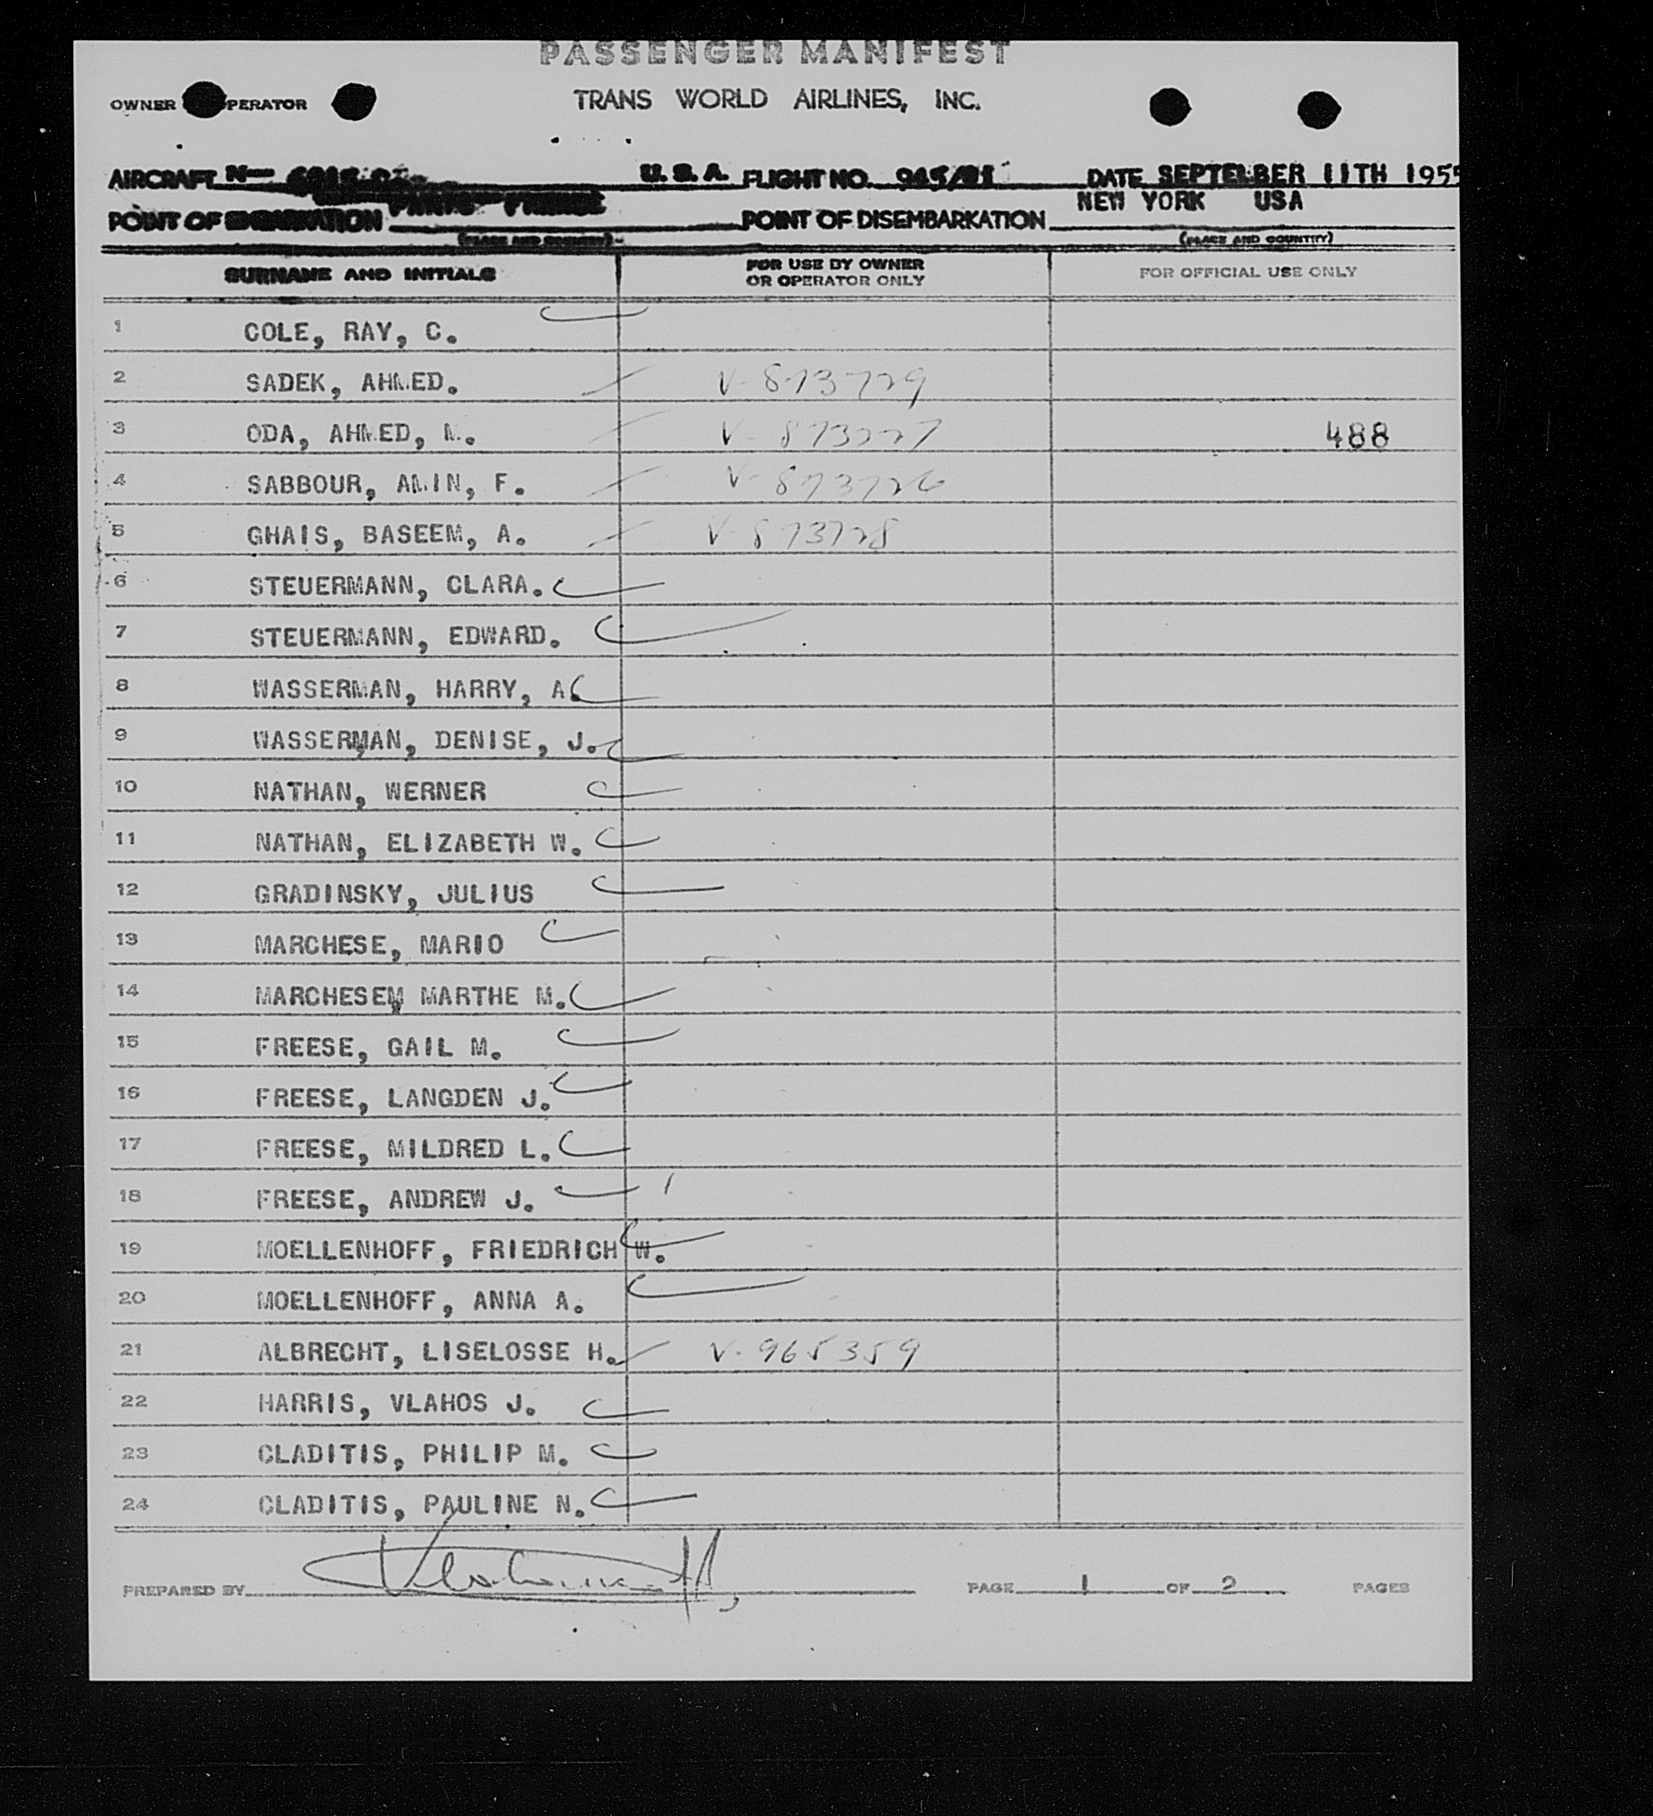 PASSENGER MANIFEST
OWNER OPERATOR TRANS WORLD AIRLINES, INC.
AIRCRAFT N- U.S.A. FLIGHT NO. DATE SEPTELBER 11TH 1955
NEW YORK USA
POINT OF EMBARKATION PARIS FRANCE POINT OF DISEMBARKATION
(PLACE AND COUNTRY) (PLACE AND COUNTRY)
SURNAME AND INITIALS FOR USE BY OWNER OR OPERATOR ONLY FOR OFFICIAL USE ONLY
1 COLE, RAY, C.
2 SADEK, AHMED. V-873729
3 ODA, AHMED, M. V-873727 488
4 SABBOUR, AMIN, F. V-873726
5 GHAIS, BASEEM, A. V-873728
6 STEUERMANN, CLARA.
7 STEUERMANN, EDWARD.
8 WASSERMAN, HARRY, A.
9 WASSERMAN, DENISE, J.
10 NATHAN, WERNER
11 NATHAN, ELIZABETH W.
12 GRADINSKY, JULIUS
13 MARCHESE, MARIO
14 MARCHESEM MARTHE M.
15 FREESE, GAIL M.
16 FREESE, LANGDEN J.
17 FREESE, MILDRED L.
18 FREESE, ANDREW J.
19 MOELLENHOFF, FRIEDRICH W.
20 MOELLENHOFF, ANNA A.
21 ALBRECHT, LISELOSSE H. V-965359
22 HARRIS, VLAHOS J.
23 CLADITIS, PHILIP M.
24 CLADITIS, PAULINE N.
PREPARED BY PAGE 1 OF 2 PAGES